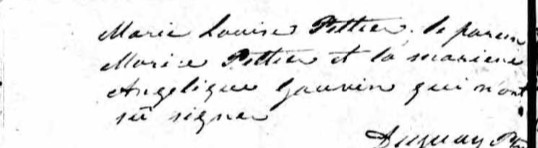 Marie Louise Pettier, le parein
Morice Pettier et la mareine
Angelique Gauvin qui n'ont
sù signer
Duguay Ptre